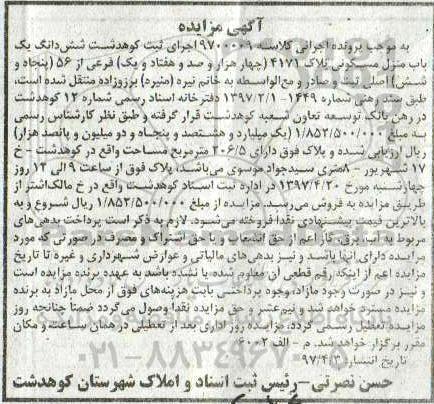 آگهی مزایده
به موجب پرونده اجرائی کلاسه ۹۷۰۰۰۰۹ اجرای ثبت کوهدشت شش‌دانگ یک
باب منزل مسکونی پلاک ۴۱۷۱ (چهار هزار و صد و هفتاد و یک) فرعی از ۵۶ (پنجاه و
شش) اصلی ثبت و صادر و مع‌الواسطه به خانم نیره (منیره) برزوزاده منتقل شده است،
طبق سند رهنی شماره ۱۴۴۹-۱۳۹۷/۲/۱ دفترخانه اسناد رسمی شماره ۱۲ کوهدشت
در رهن بانک توسعه تعاون شعبه کوهدشت قرار گرفته و طبق نظر کارشناس رسمی
به مبلغ ۱/۸۵۲/۵۰۰/۰۰۰ (یک میلیارد و هشتصد و پنجاه و دو میلیون و پانصد هزار)
ریال ارزیابی شده و پلاک فوق دارای ۲۰۶/۵ مترمربع مساحت واقع در کوهدشت - خ
۱۷ شهریور - ۸متری سیدجواد موسوی می‌باشد، پلاک فوق از ساعت ۹ الی ۱۲ روز
چهارشنبه مورخ ۱۳۹۷/۴/۲۰ در اداره ثبت اسناد کوهدشت واقع در خ مالک‌اشتر از
طریق مزایده به فروش می‌رسد. مزایده از مبلغ ۱/۸۵۲/۵۰۰/۰۰۰ ریال شروع و به
بالاترین قیمت پیشنهادی نقدا فروخته می‌شود. لازم به ذکر است پرداخت بدهی‌های
مربوط به آب، برق، گاز اعم از حق انشعاب و یا حق اشتراک و مصرف در صورتی که مورد
مزایده دارای آنها باشد و نیز بدهی‌های مالیاتی و عوارض شهرداری و غیره تا تاریخ
مزایده اعم از اینکه رقم قطعی آن معلوم شده یا نشده باشد به عهده برنده مزایده است
و نیز در صورت وجود مازاد، وجوه پرداختی بابت هزینه‌های فوق از محل مازاد به برنده
مزایده مسترد خواهد شد و نیم‌عشر و حق مزایده نقدا وصول می‌گردد ضمنا چنانچه روز
مزایده تعطیل رسمی گردد، مزایده روز اداری بعد از تعطیلی در همان ساعت و مکان
مقرر برگزار خواهد شد. م - الف ۶۰۰۲
تاریخ انتشار: ۹۷/۴/۳
حسن نصرتی - رئیس ثبت اسناد و املاک شهرستان کوهدشت